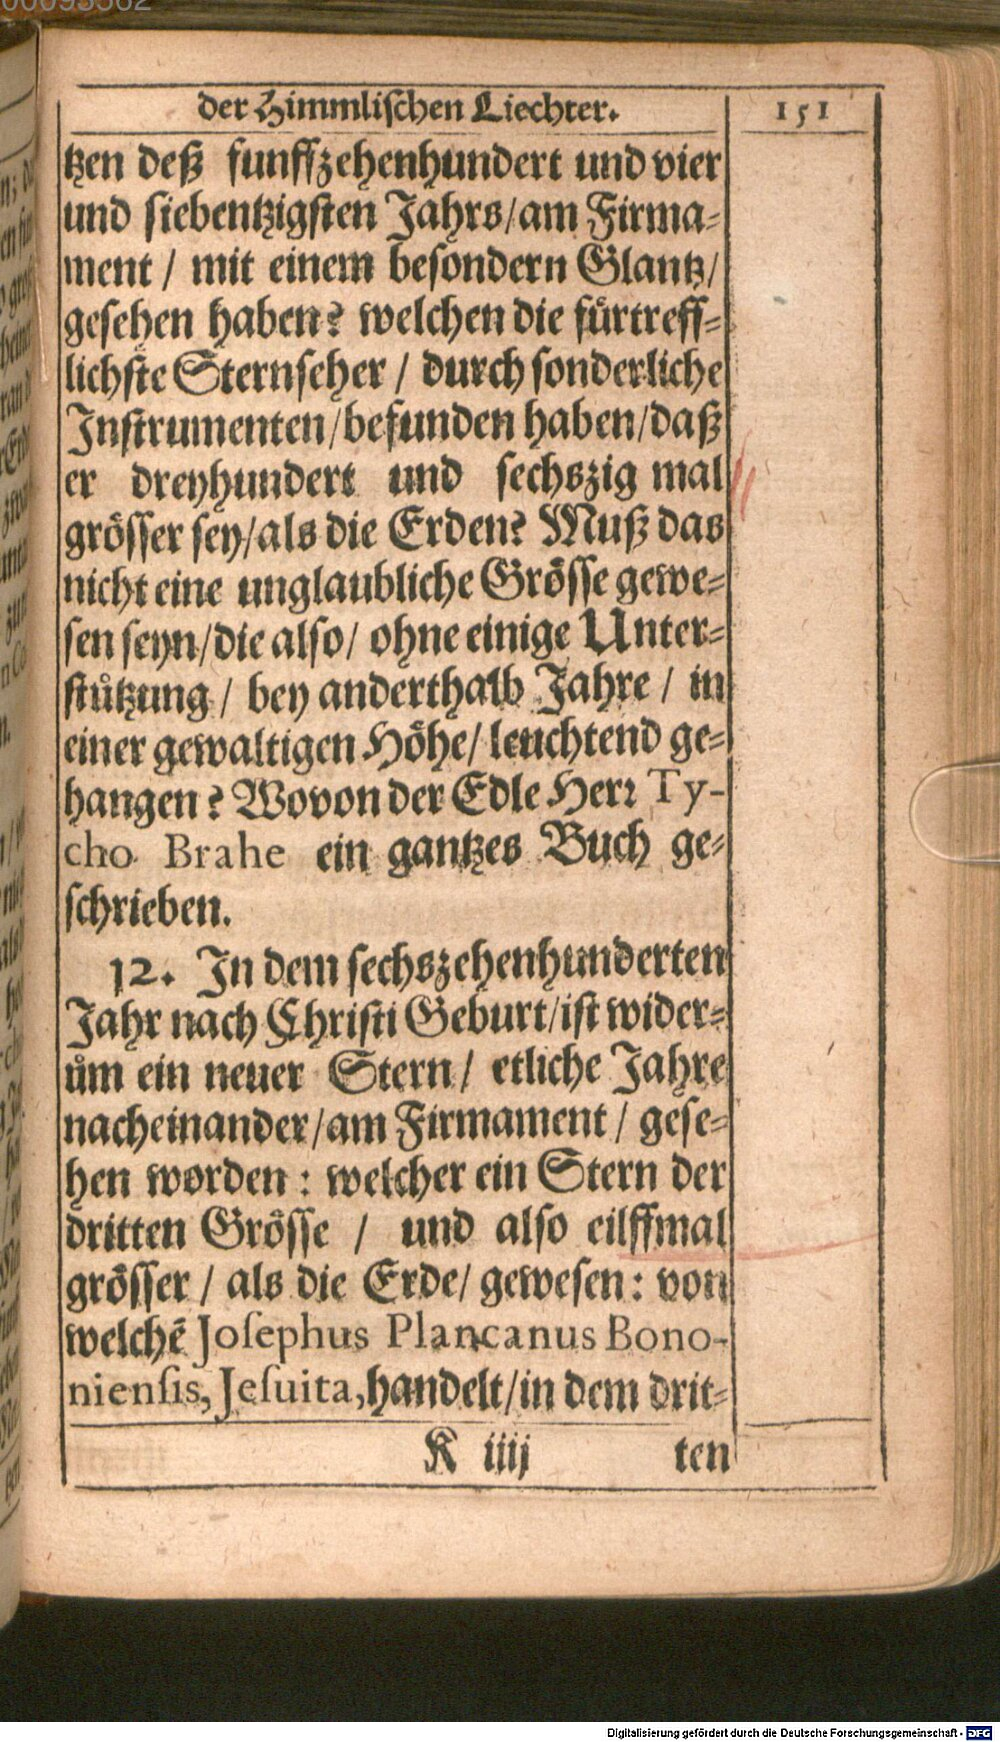 00093562
der Himmlischen Liechter. 151
tzen deß funffzehenhundert und vier
und siebentzigsten Jahrs/am Firma-
ment / mit einem besondern Glantz/
gesehen haben? welchen die fuͤrtreff-
lichste Sternseher / durch sonderliche
Instrumenten/befunden haben/daß
er dreyhundert und sechszig mal
groͤsser sey/als die Erden? Muß das
nicht eine unglaubliche Groͤsse gewe-
sen seyn/die also/ ohne einige Unter-
stuͤtzung / bey anderthalb Jahre / in
einer gewaltigen Hoͤhe/ leuchtend ge-
hangen? Wovon der Edle Herr Ty-
cho Brahe ein gantzes Buch ge-
schrieben.
12. In dem sechszehenhunderten
Jahr nach Christi Geburt/ist wider-
uͤm ein neuer Stern / etliche Jahre
nacheinander/am Firmament / gese-
hen worden : welcher ein Stern der
dritten Groͤsse / und also eilffmal
groͤsser / als die Erde/ gewesen: von
welchē Josephus Plancanus Bono-
niensis, Jesuita, handelt/in dem drit-
K iiij ten
Digitalisierung gefördert durch die Deutsche Forschungsgemeinschaft - DFG